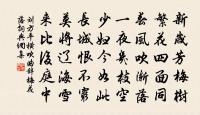 新歲芳梅樹
繁花四面同
春風吹漸落
一夜幾枝空
少婦今如此
長城恨不窮
莫將遼海雪
來比後庭中
劉方平橫吹曲辭梅花
落詞